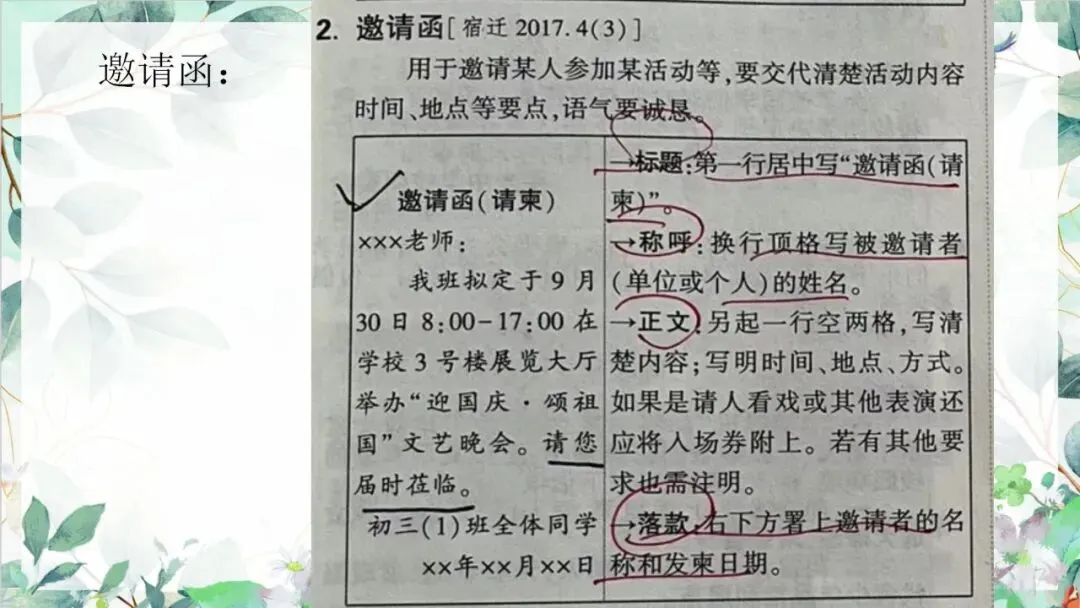 邀请函：
2. 邀请函[宿迁 2017.4(3)]
用于邀请某人参加某活动等,要交代清楚活动内容
时间、地点等要点,语气要诚恳。
邀请函(请柬)
×××老师:
我班拟定于9月
30日8:00-17:00在
学校3号楼展览大厅
举办“迎国庆·颂祖
国”文艺晚会。请您
届时莅临。
初三(1)班全体同学
××年××月××日
→标题:第一行居中写“邀请函(请
柬)”。
→称呼:换行顶格写被邀请者
(单位或个人)的姓名。
→正文:另起一行空两格,写清
楚内容;写明时间、地点、方式。
如果是请人看戏或其他表演还
应将入场券附上。若有其他要
求也需注明。
→落款:右下方署上邀请者的名
称和发柬日期。